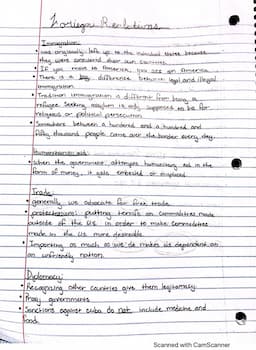 Foreign Relations
Immigration:
• was originally left up to the individual states because
they were considered their own countries.
• If you move to America, you are an American
• There is a big difference between legal and illegal
immigration
• Tradition immigration is different from being a
refugee. Seeking asylum is only supposed to be for
religious or political persecution.
• Somewhere between a hundred and a hundred and
fifty thousand people come over the border every day.
Humanitarian aid:
• when the government attempts humanitary aid in the
form of money, it gets embezzled or misplaced
Trade:
• generally we advocate for free trade
• protectionism: putting tariffs on commodities made
outside of the US in order to make commodities
made in the US more desirable.
• Importing as much as we do makes us dependent on
an unfriendly nation.
Diplomacy:
• Recognizing other countries give them legitimacy
• Proxy governments
• Sanctions against Cuba do not include medicine and
food.
Scanned with CamScanner